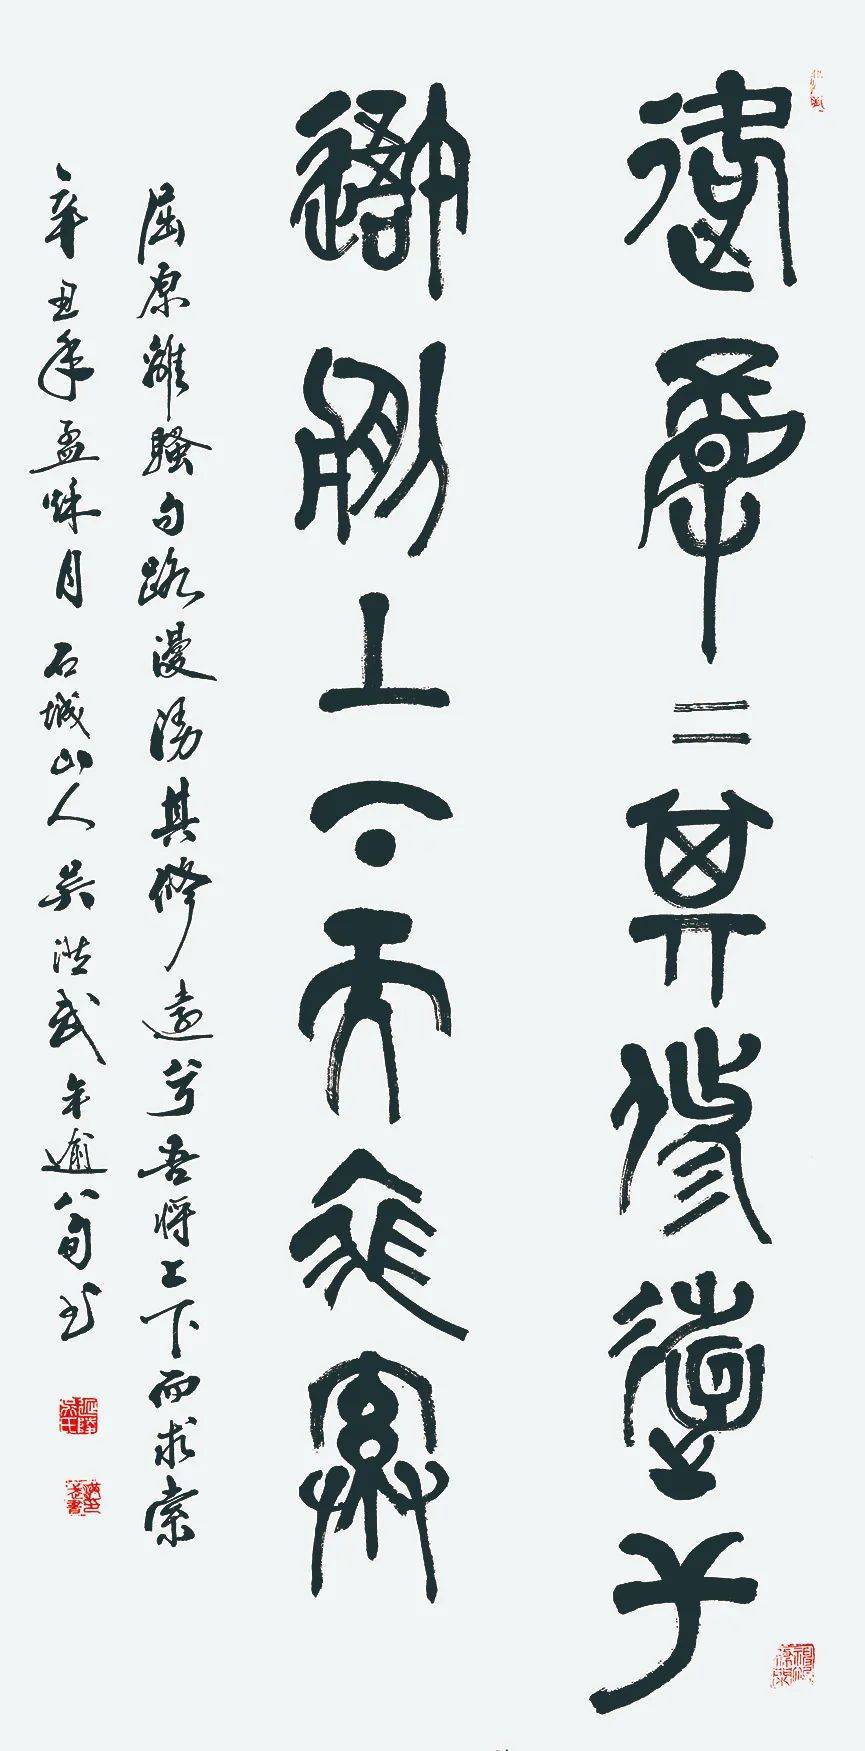 路曼〻其修遠兮
吾將上下而求索
屈原離騷句路漫漫其修遠兮吾將上下而求索
辛丑年孟秋月石城山人吴洪武年逾八旬书